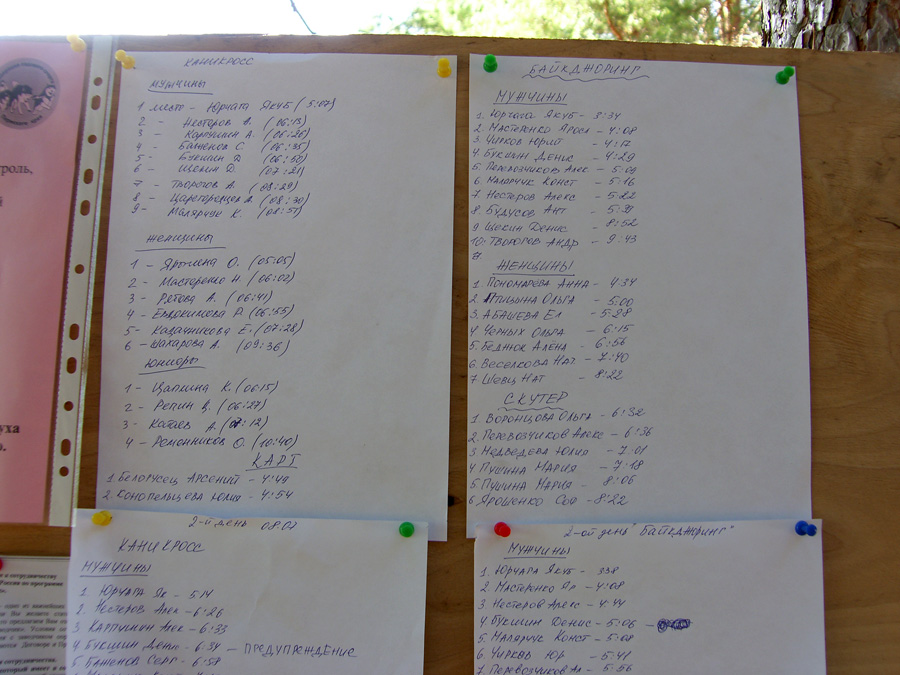 КАНИКРОСС
МУЖЧИНЫ
1 место - Юрчага Якуб (5:07)
2 - Нестеров А. (06:13)
3 - Карпушин А. (06:26)
4 - Баженов С. (06:35)
5 - Букшин Д (06:50)
6 - Щекин Д. (07:21)
7 - Творогов А. (08:29)
8 - Царегородцев А. (08:30)
9 - Малярчук К. (08:57)
Женщины
1 - О. (05:05)
2 - Мастеренко Н. (06:02)
3 - Рятова А. (06:41)
4 - Евдокимова Р. (06:55)
5 - Казачникова Е. (07:28)
6 - Шахарова А. (09:36)
Юниоры
1 - Цаплина К. (06:15)
2 - Репин В. (06:27)
3 - Катаев А. (07:12)
4 - Ремонников О. (10:40)
КАРТ
1. Белорусец Арсений - 4:49
2. Конопельцева Юлия - 4:54
БАЙКДЖОРИНГ
МУЖЧИНЫ
1. Юрчага Якуб - 3:34
2. Мастеренко Яросл - 4:08
3. Чирков Юрий - 4:17
4. Букшин Денис - 4:29
5. Перевозчиков Алек - 5:09
6. Малярчук Конст - 5:16
7. Нестеров Алекс - 5:22
8. Будусов Ант - 5:31
9. Щекин Денис - 8:52
10. Творогов Андр - 9:43
ЖЕНЩИНЫ
1. Пономарева Анна - 4:34
2. Птицына Ольга - 5:00
3. Абашева Ел - 5:28
4. Черных Ольга - 6:15
5. Беднюк Алена - 6:56
6. Веселкова Нат - 7:40
7. Швец Нат - 8:22
СКУТЕР
1. Воронцова Ольга - 6:32
2. Перевозчиков Алекс - 6:36
3. Медведева Юлия - 7:01
4. Пушина Мария - 7:18
5. Пушина Мария - 8:06
6. Ярошенко Соф - 8:22
2-й день 08.07
КАНИКРОСС
МУЖЧИНЫ
1. Юрчага Як - 5:14
2. Нестеров Алек - 6:26
3. Карпушин Алек - 6:33
4. Букшин Денис - 6:34 - ПРЕДУПРЕЖДЕНИЕ
5. Баженов Серг - 6:58
2-ой день "Байкджоринг"
МУЖЧИНЫ
1. Юрчага Якуб - 338
2. Мастеренко Яр - 4:08
3. Нестеров Алекс - 4:44
4. Букшин Денис - 5:06 -
5. Малярчук Конст - 5:08
6. Чирков Юр - 5:41
7. Перевозчиков Ал - 5:56